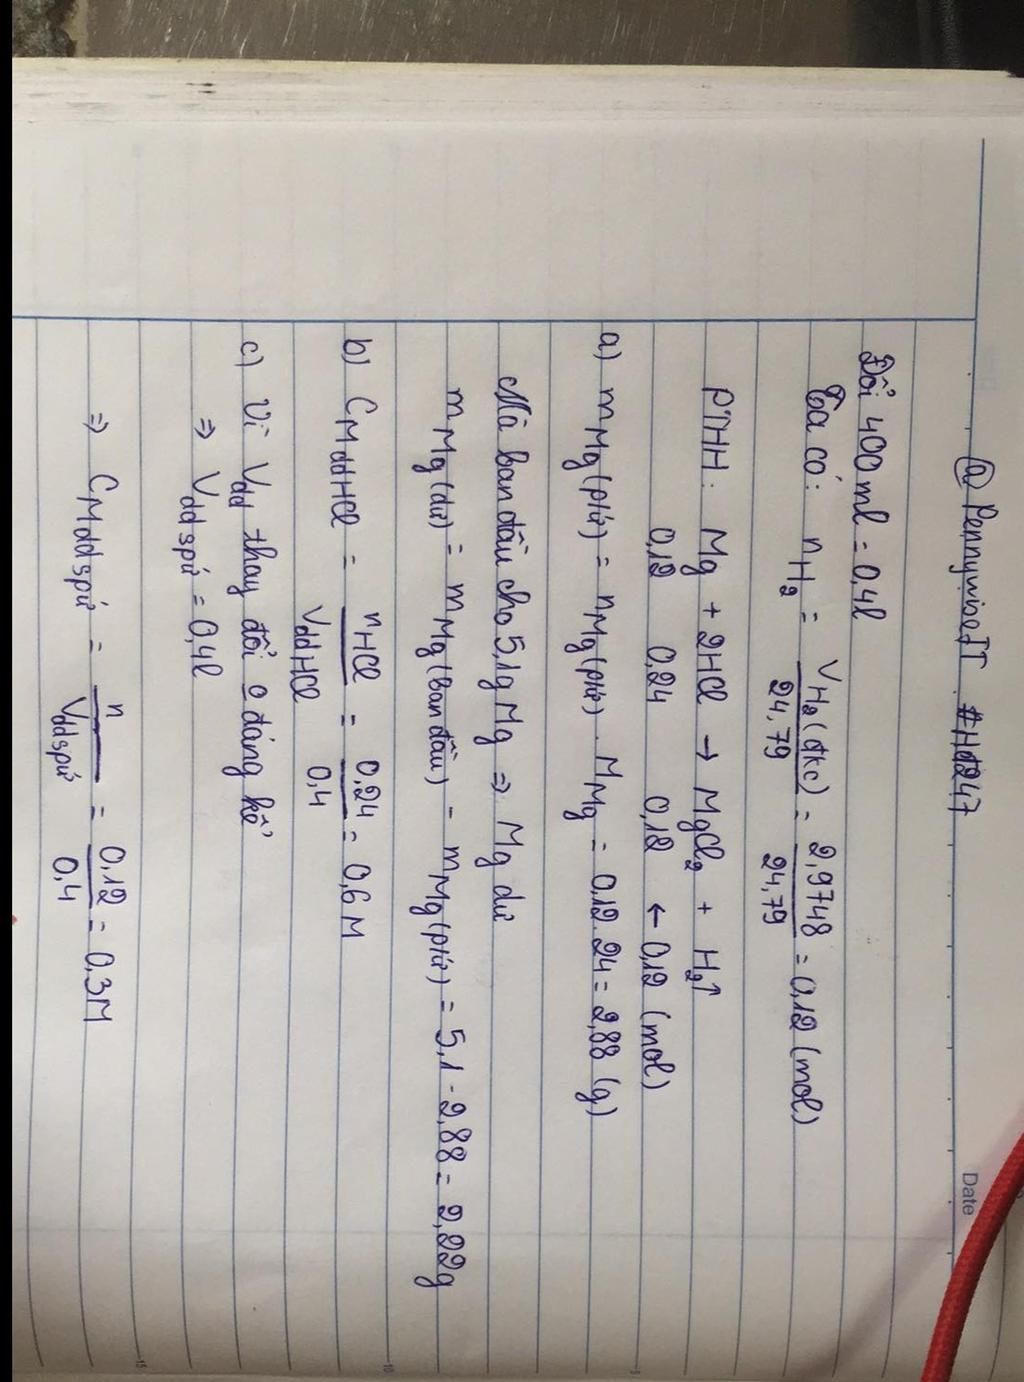 @PennywiseJT #Hđ247
Date
Đổi 400ml = 0,4l
Ta có: nH₂ = VH₂(đkc)/24,79 = 2,9748/24,79 = 0,12 (mol)
PTHH: Mg + 2HCl → MgCl₂ + H₂↑
0,12 0,24 0,12 ← 0,12 (mol)
a) mMg(pứ) = nMg(pứ) . MMg = 0,12.24 = 2,88 (g)
Mà ban đầu cho 5,1g Mg ⇒ Mg dư
mMg(dư) = mMg(ban đầu) - mMg(pứ) = 5,1 - 2,88 = 2,22g
b) CMddHCl = nHCl/VddHCl = 0,24/0,4 = 0,6M
c) Vì Vdd thay đổi o đáng kể
⇒ Vddspứ = 0,4l
⇒ CMddspứ = n/Vddspứ = 0,12/0,4 = 0,3M
5
10
15